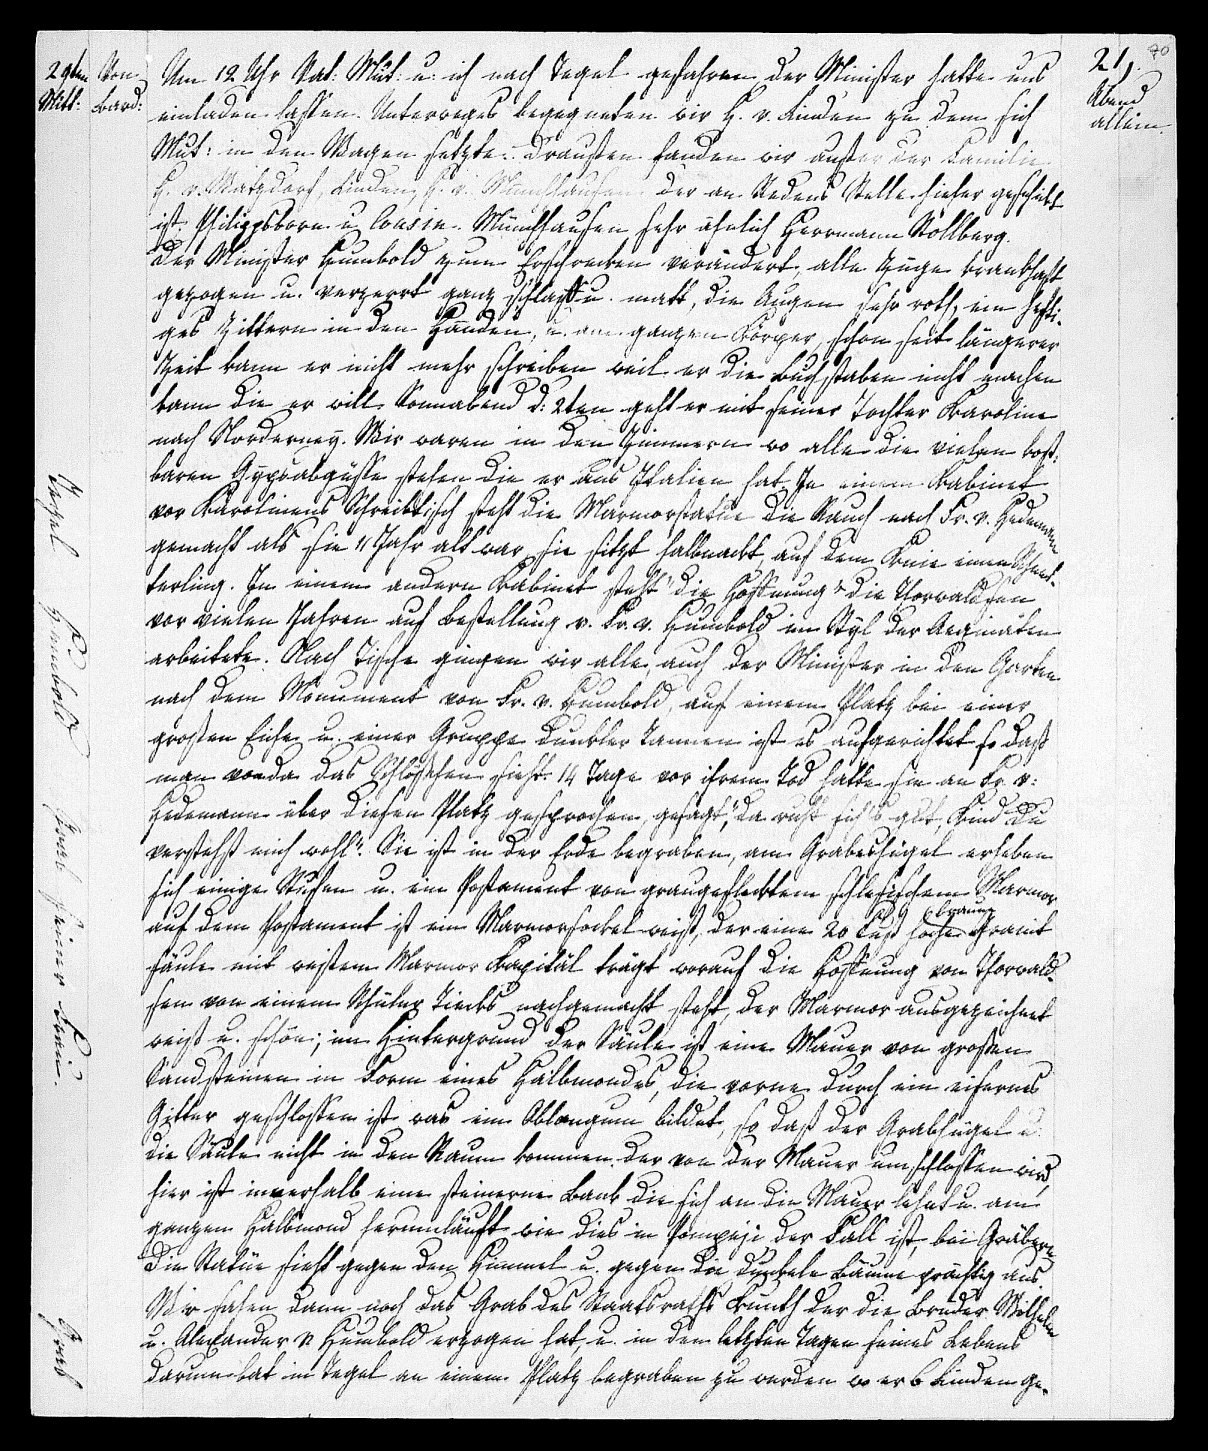 29ten Von
Mitt: Lard:
21, 70
Abend
allein
Um 12 Uhr Vat: Mut: u. ich nach Tegel gefahren, der Minister hatte uns
einladen lassen. Unterweges begegneten wir H. v. Linden zu dem sich
Mut: in den Wagen setzte. Draußen fanden wir außer der Familie
H. v. Matzdorf, Linden, H. v. Münchhausen der an Redens Stelle hieher geschickt
ist. Philippsborn u Cousin. Münchhausen sehr ähnlich Herrmann Stollberg.
Der Minister Humbold zum Erschrecken verändert, alle Züge krankhaft
gezogen u. verzerrt ganz schlaff u. matt, die Augen sehr roth, ein hefti-
ges Zittern in den Händen, u. am ganzen Körper, schon seit längerer
Zeit kann er nicht mehr schreiben weil er die Buchstaben nicht machen
kann die er will. Sonnabend d: 2ten geht er mit seiner Tochter Karoline
nach Norderney. Wir waren in den Zimmern wo alle die vielen kost-
baren Gypsabgüsse stehen die er aus Italien hat. In einem Kabinet
vor Karolinens Schreibtisch steht die Marmorstatue die Rauch nach Fr. v. Hedemann
gemacht als sie 11 Jahr alt war sie sitzt halbnackt, auf dem Knie einen Schmet-
terling. In einem andern Kabinet steht "die Hoffnung" die Thorwaldsen
vor vielen Jahren auf Bestellung v. Fr. v. Humbold im Styl der Aeginäten
arbeitete. Nach Tische gingen wir alle, auch der Minister in den Garten
nach dem Monument von Fr. v. Humbold, auf einem Platz bei einer
großen Eiche u. einer Gruppe dunkler Tannen ist es aufgerichtet so daß
man von da das Schlößchen sieht. 14 Tage vor ihrem Tod hatte sie an Fr. v:
Hedemann über diesen Platz gesprochen, gesagt, "da ruht sich's gut, Kind Du
verstehst mich wohl". Sie ist in der Erde begraben, am Grabeshügel erheben
sich einige Stufen u. ein Postament von graugeflecktem schlesischem Marmor
auf dem Postament ist ein Marmorsockel weiß, der eine 20 Fuß hohe braune Granit
säule mit weißem Marmor Kapitäl trägt worauf die Hoffnung von Thorwald-
sen von einem Schüler Tiecks nachgemacht steht, der Marmor ausgezeichnet
weiß u. schön; im Hintergrund der Säule ist eine Mauer von großen
Sandsteinen in Form eines Halbmondes, die vorne durch ein eisernes
Gitter geschlossen ist was ein Oblongum bildet, so daß der Grabhügel u.
die Säule nicht in den Raum kommen der von der Mauer umschlossen wird,
hier ist innerhalb eine steinerne Bank die sich an die Mauer lehnt u. am
ganzen Halbmond herumläuft wie dies in Pompeji der Fall ist, bei Gräbern
Die Statüe sieht gegen den Himmel u. gegen die dunkele Bäume prächtig aus.
Wir sahen dann noch das Grab des Staatsraths Kunth der die Brüder Wilhelm
u. Alexander v Humbold erzogen hat, u. in den letzten Tagen seines Lebens
darum bat in Tegel an einem Platz begraben zu werden wo er 6 Linden ge-
Tegel Humbold Grab seiner Frau.
Grab